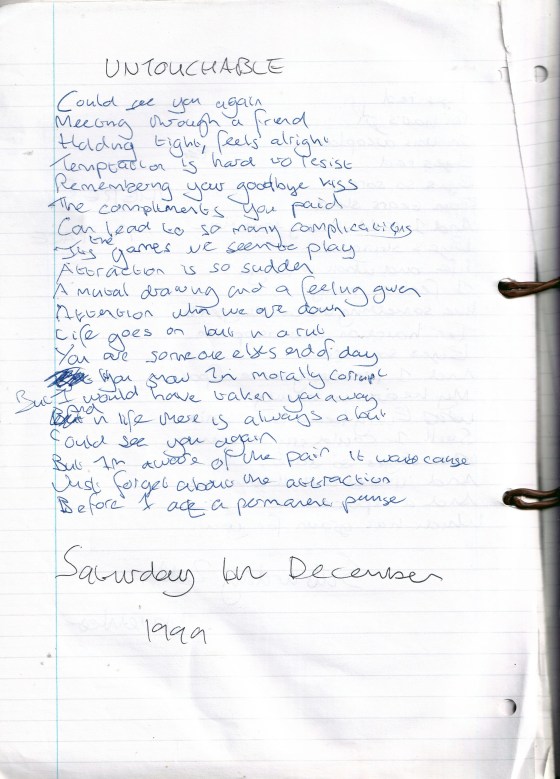 UNTOUCHABLE
Could see you again
Meeting through a friend
Holding tight, feels alright
Temptation is hard to resist
Remembering your goodbye kiss
The compliments you paid
Can lead to so many complications
Its the games we seem to play
Attraction is so sudden
A mutual drawing and a feeling given
Attention when we are down
Life goes on but in a rut
You are someone else's end of day
you know Im morally corrupt
But I would have taken you away
and in life there is always a but
Could see you again
But Im aware of the pain it would cause
Just forget about the attraction
Before I act a permanent pause
Saturday December
1999